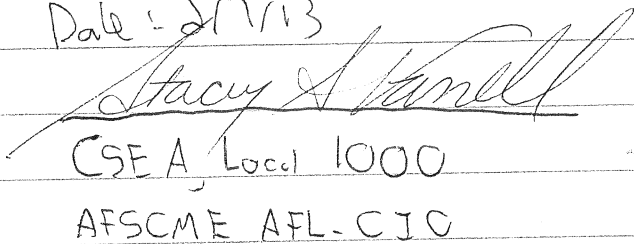 Date: 2/7/13
Stacy S
CSEA, Local 1000
AFSCME AFL-CIO